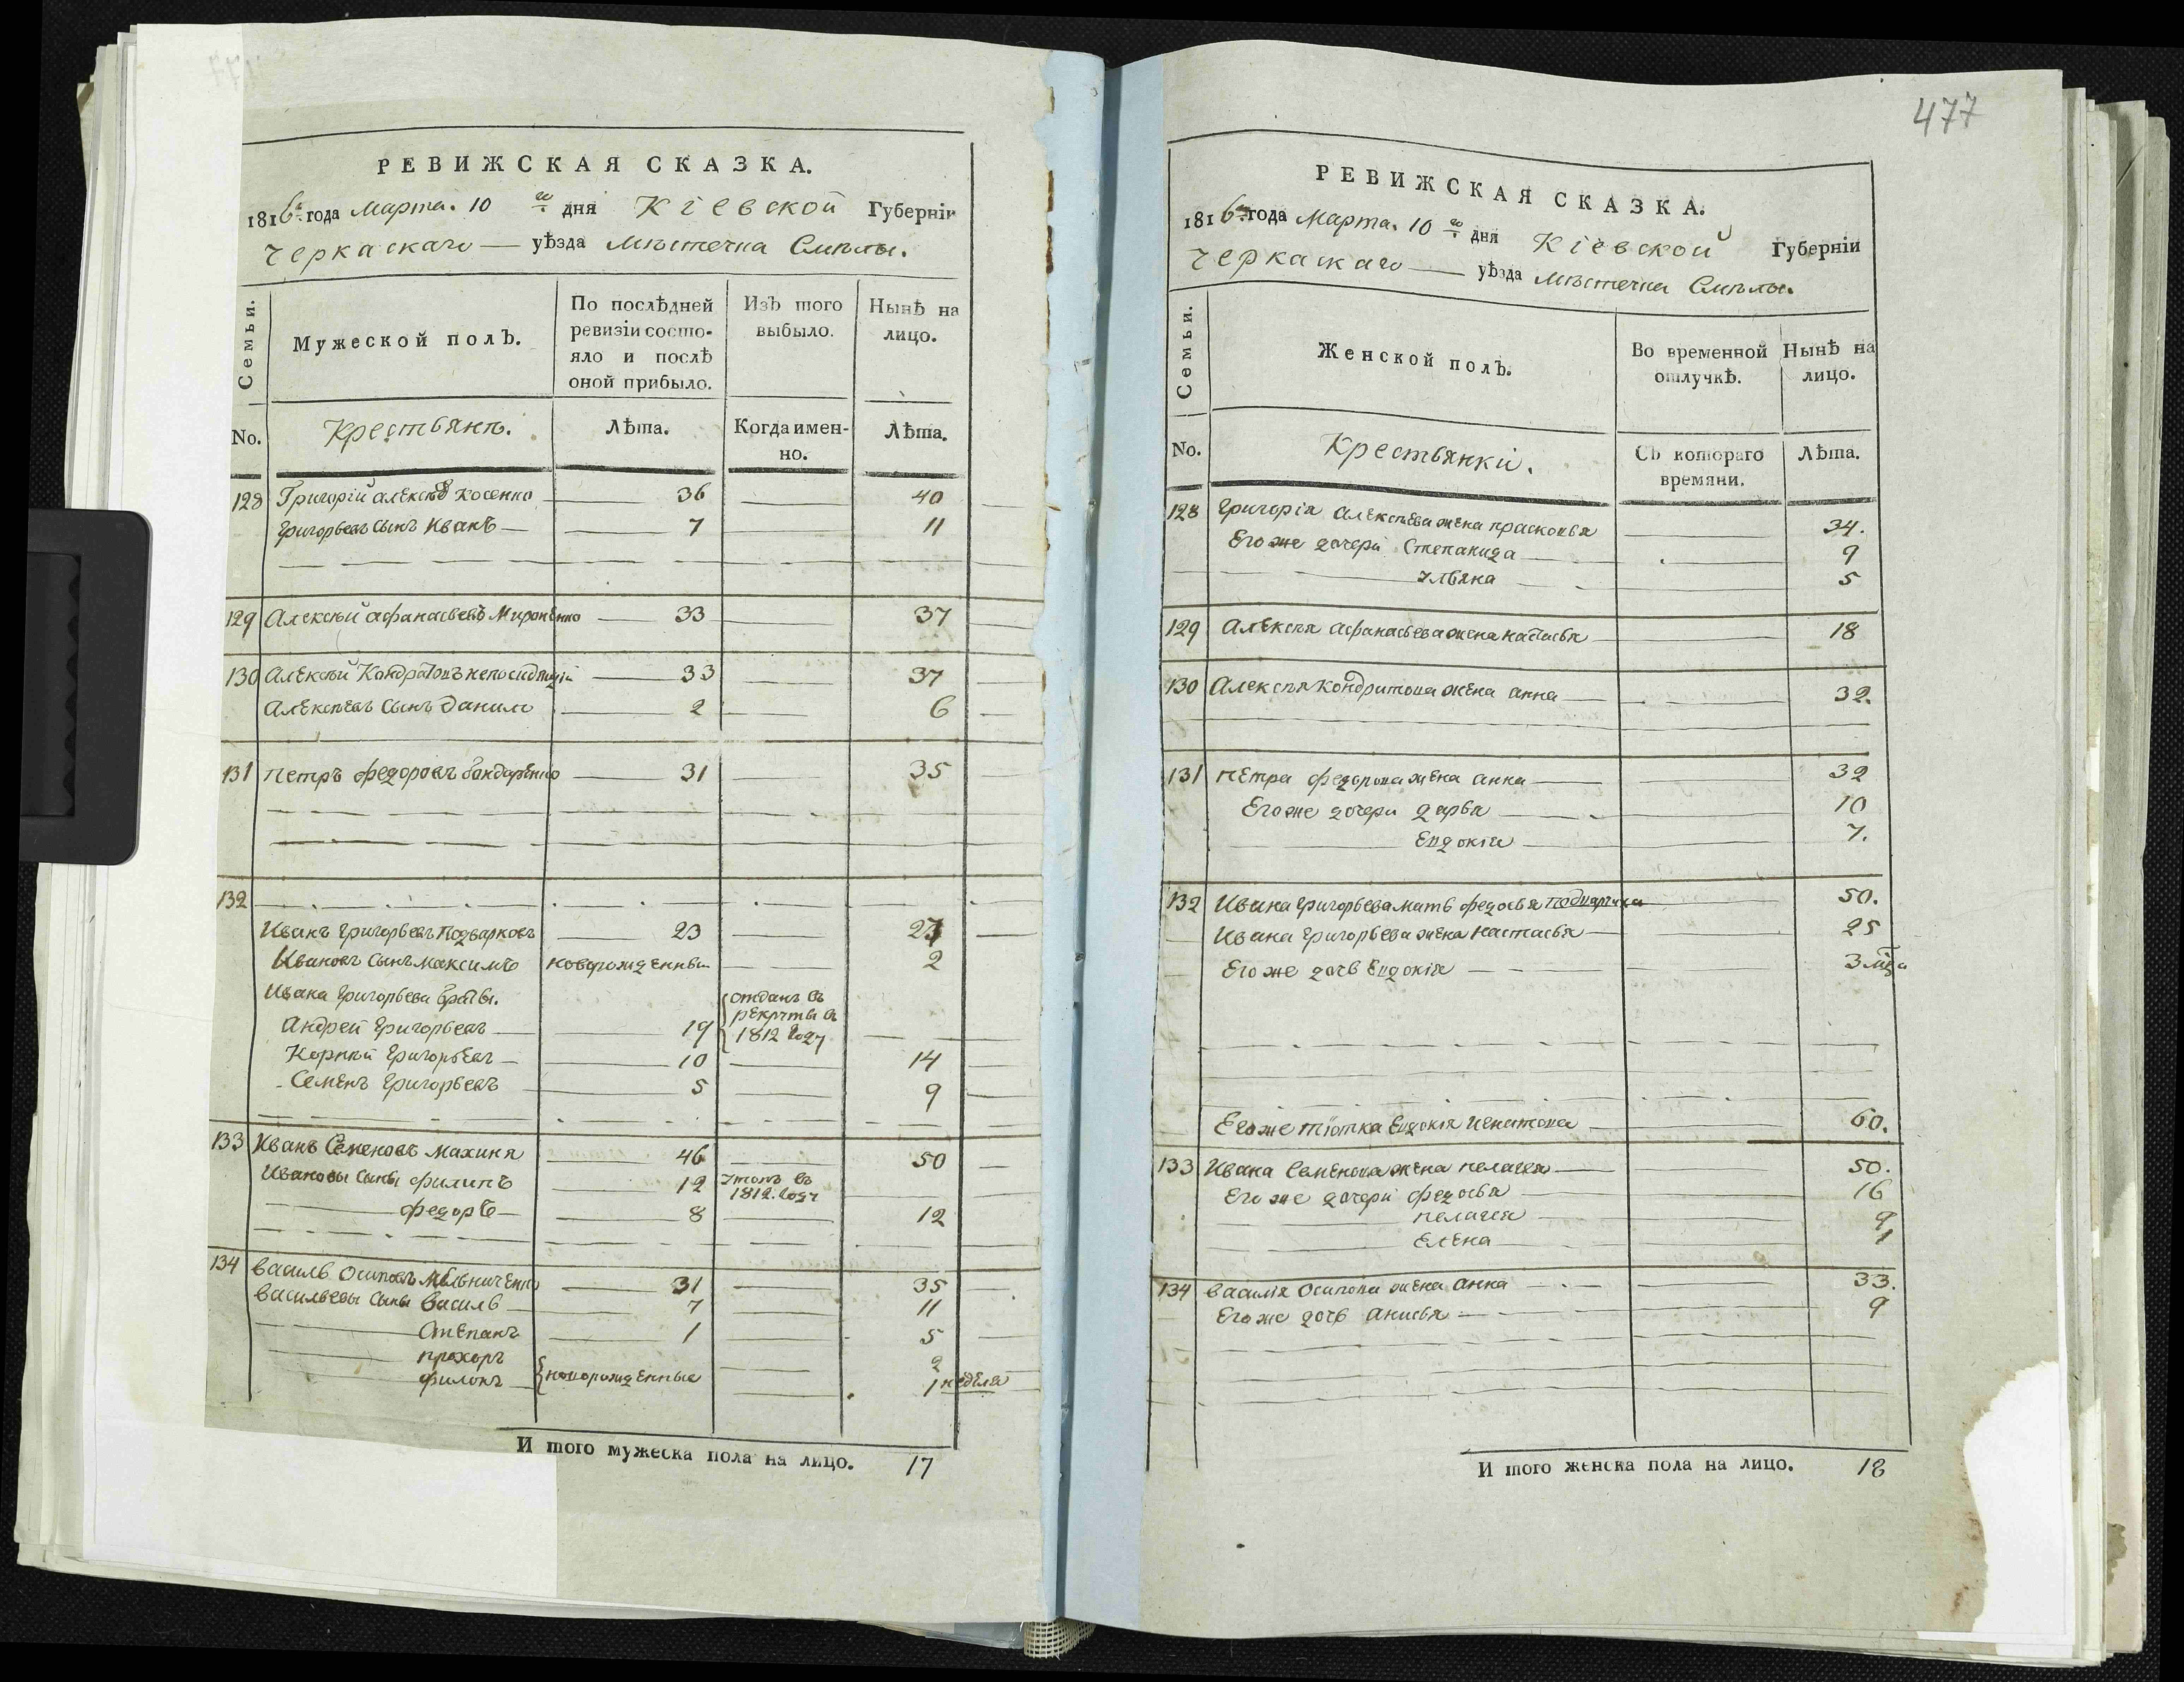 РЕВИЖСКАЯ СКАЗКА.
1816го года Марта. 10го дня Кіевской Губерніи
Черкаскаго — уѣзда Мѣстечка Смѣлы.
Семьи.
Мужеской полъ.
По послѣдней ревизіи состояло и послѣ оной прибыло.
Изъ того выбыло.
Нынѣ на лицо.
No.
Крестьянъ.
Лѣта.
Когда именно.
Лѣта.
128 Григорій алексѣевъ Косенко 36 40
Григорьевъ сынъ Иванъ 7 11
129 Алексѣй афанасьевъ Мироненко 33 37
130 Алексѣй Кондратовъ непосидящій 33 37
Алексѣевъ сынъ Данило 2 6
131 Петръ федоровъ бондаренко 31 35
132
Иванъ Григорьевъ Подварковъ 23 27
Ивановъ сынъ Максимъ новорожденный 2
Ивана Григорьева братьи.
Андрей Григорьевъ 19 отданъ въ рекруты въ 1812 году
Корнѣй Григорьевъ 10 14
Семенъ Григорьевъ 5 9
133 Иванъ Семеновъ Махиня 46 50
Ивановы сыны филипъ 12 утопъ въ 1812. году
федоръ 8 12
134 Василь Осиповъ Мельниченко 31 35
Васильевы сыны Василь 7 11
Степанъ 1 5
прохоръ 2
филонъ новорожденные 1 неделя
И того мужеска пола на лицо. 17
477
РЕВИЖСКАЯ СКАЗКА.
1816го года Марта. 10го дня Кіевской Губерніи
Черкаскаго — уѣзда Мѣстечка Смѣлы.
Семьи.
Женской полъ.
Во временной отлучкѣ.
Нынѣ на лицо.
No.
Крестьянки.
Съ котораго времяни.
Лѣта.
128 Григорія алексѣева жена прасковья 34.
Его же дочери Степанида 9
Ульяна 5
129 Алексѣя афанасьева жена настасья 18
130 Алексѣя Кондратова жена анна 32.
131 Петра федорова жена анна 32
Его же дочери дарья 10
Евдокія 7.
132 Ивана Григорьева мать федосья 50.
Ивана Григорьева жена настасья 25
Его же дочь Евдокія 3 мѣца
Его же тіотка Евдокія Игнатова 60.
133 Ивана Семенова жена пелагея 50.
Его же дочери федосья 16
пелагея 9
Елена 1
134 Василія Осипова жена анна 33.
Его же дочь анисья 9
И того женска пола на лицо. 18